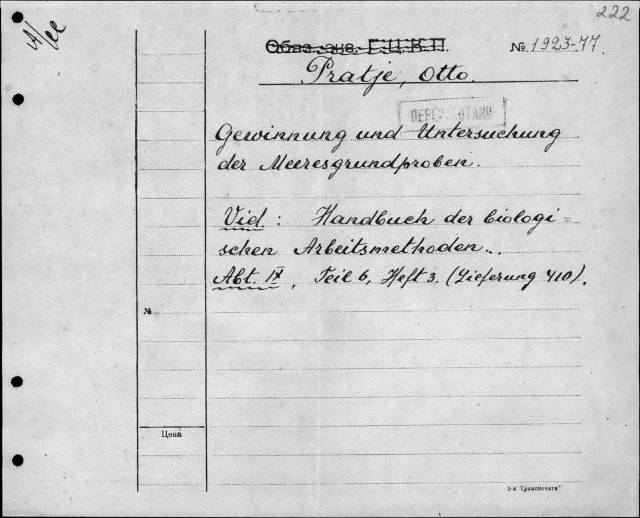 222
Обяз. экз. Г.Ц.К.П.
№ 1923-77.
Pratje, Otto.
Gewinnung und Untersuchung
der Meeresgrundproben.
Vid : Handbuch der biologi=
schen Arbeitsmethoden..
Abt. IX, Teil 6, Heft 3. (Lieferung 410).
№
Цена
3-я Транспечать"